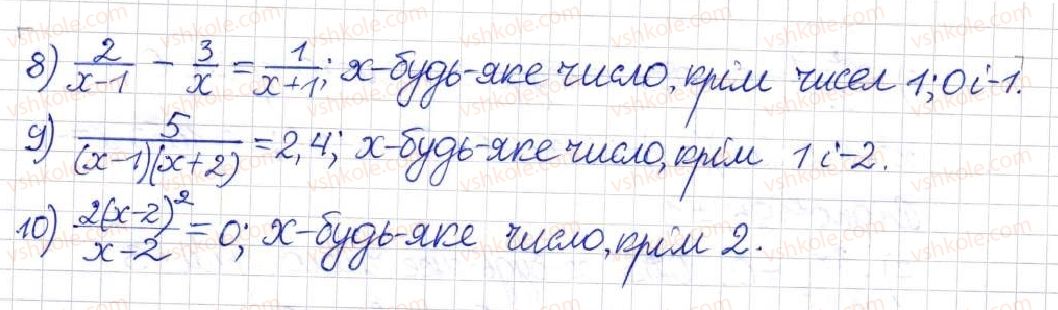 8) 2/(x-1) - 3/x = 1/(x+1); x-будь-яке число, крім чисел 1; 0 і -1.
9) 5/((x-1)(x+2)) = 2,4; x-будь-яке число, крім 1 і -2.
10) 2(x-2)²/(x-2) = 0; x-будь-яке число, крім 2.